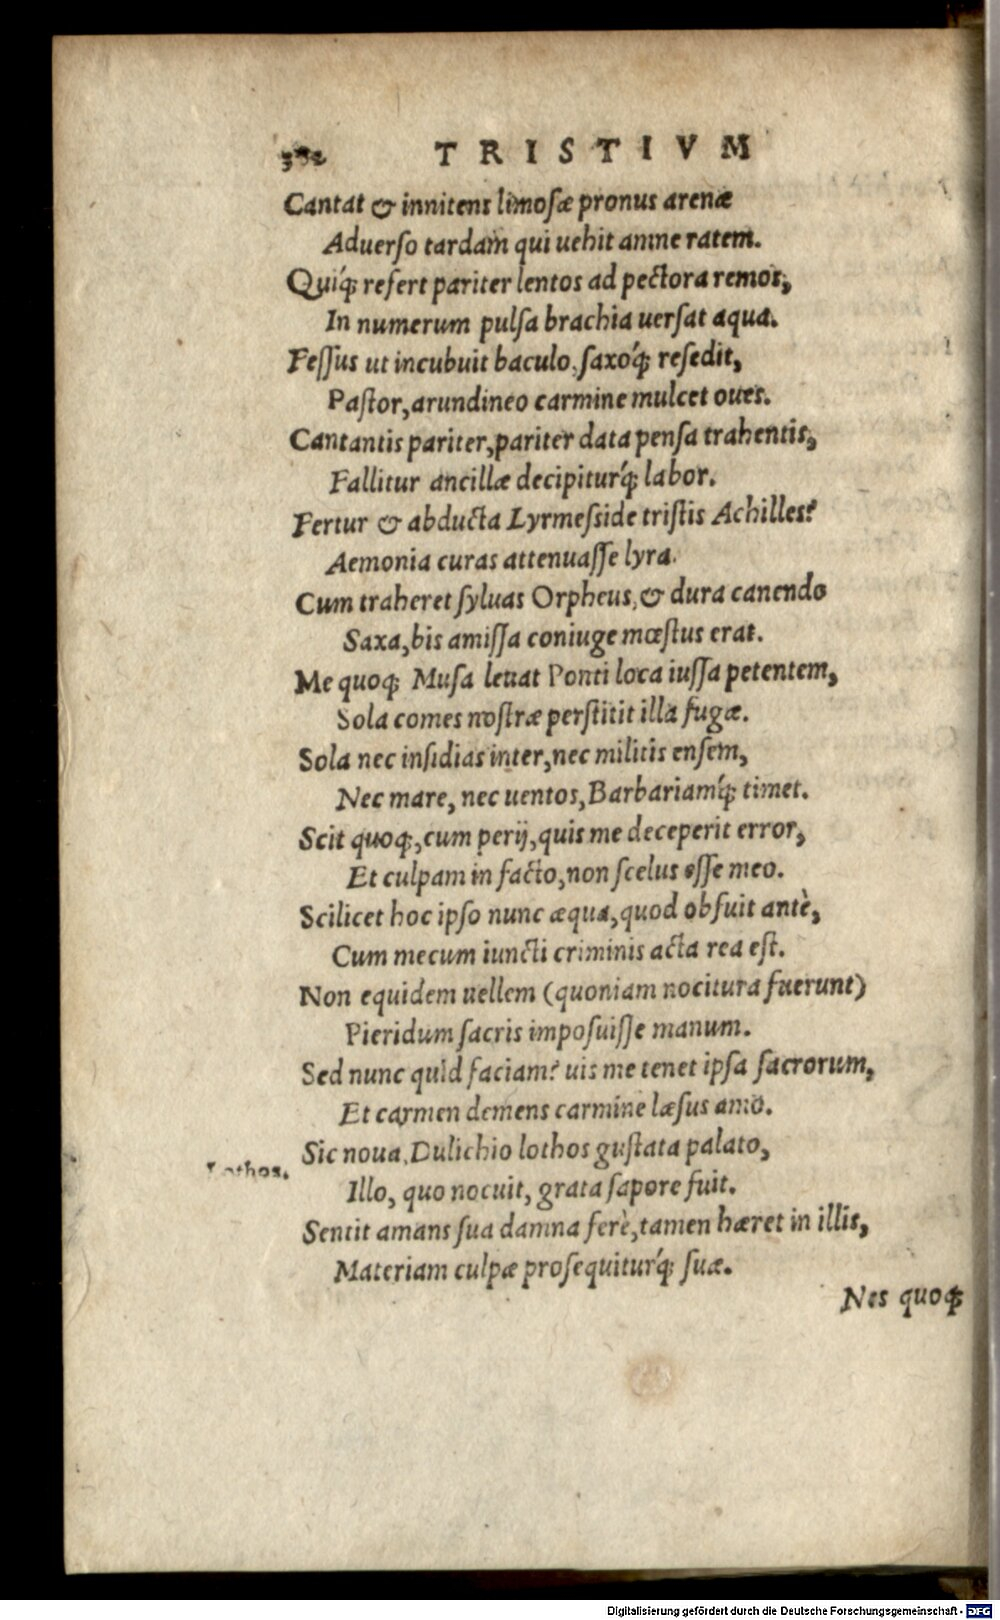 TRISTIVM
Cantat & innitens limosæ pronus arenæ
Aduerso tardam qui uehit amne ratem.
Quiq́; refert pariter lentos ad pectora remos,
In numerum pulsa brachia uersat aqua.
Fessus ut incubuit baculo, saxoq́; resedit,
Pastor, arundineo carmine mulcet oues.
Cantantis pariter, pariter data pensa trahentis,
Fallitur ancillæ decipiturq́; labor.
Fertur & abducta Lyrmesside tristis Achilles?
Aemonia curas attenuasse lyra.
Cum traheret syluas Orpheus, & dura canendo
Saxa, bis amissa coniuge mœstus erat.
Me quoq; Musa leuat Ponti loca iussa petentem,
Sola comes nostræ perstitit illa fugæ.
Sola nec insidias inter, nec militis ensem,
Nec mare, nec uentos, Barbariamq́; timet.
Scit quoq;, cum perij, quis me deceperit error,
Et culpam in facto, non scelus esse meo.
Scilicet hoc ipso nunc æqua, quod obfuit antè,
Cum mecum iuncti criminis acta rea est.
Non equidem uellem (quoniam nocitura fuerunt)
Pieridum sacris imposuisse manum.
Sed nunc quid faciam? uis me tenet ipsa sacrorum,
Et carmen demens carmine læsus amo.
Sic noua, Dulichio lothos gustata palato,
Lothos.
Illo, quo nocuit, grata sapore fuit.
Sentit amans sua damna ferè, tamen hæret in illis,
Materiam culpæ prosequiturq́; suæ.
Nes quoq;
Digitalisierung gefördert durch die Deutsche Forschungsgemeinschaft - DFG